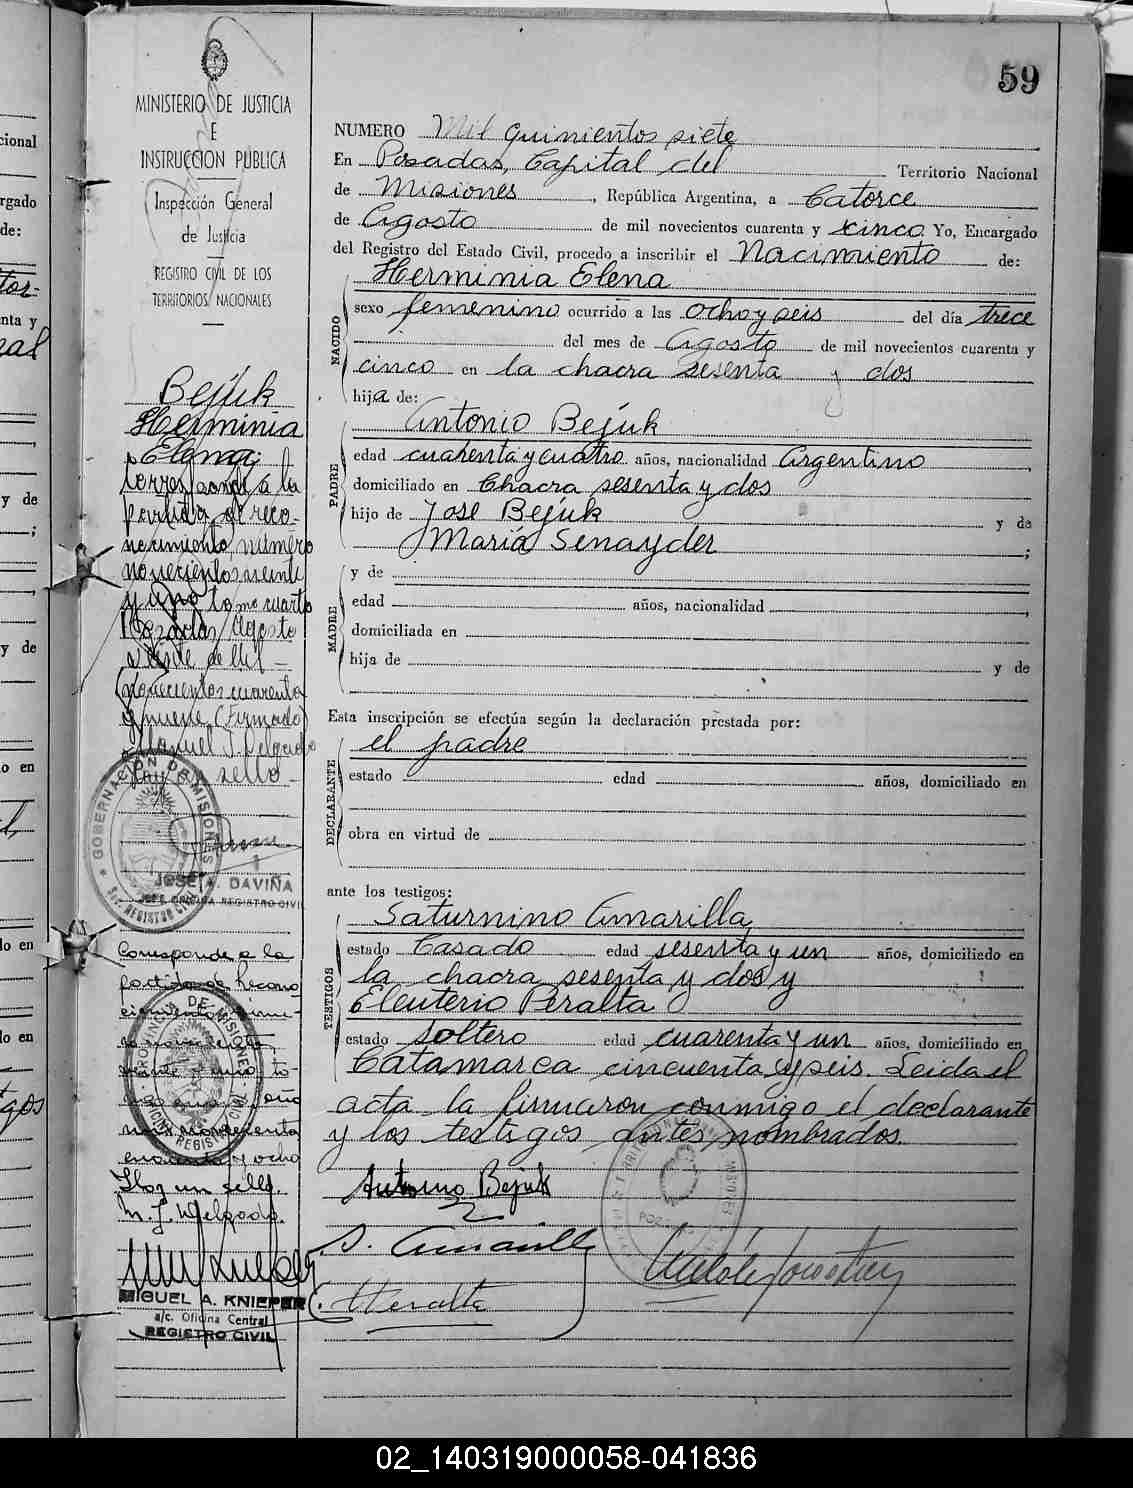 59
MINISTERIO DE JUSTICIA
E
INSTRUCCION PUBLICA
Inspección General
de Justicia
REGISTRO CIVIL DE LOS
TERRITORIOS NACIONALES
Bejuk
Herminia
Elena
corresponde a la
partida de reco-
nocimiento número
novecientos veinte
y uno tomo cuarto
Posadas, Agosto
siete de Mil
novecientos cuarenta
y nueve (Firmado)
Manuel J. Delgado
Hay un sello
GOBERNACIÓN DE MISIONES
REGISTRO CIVIL
JOSE A. DAVIÑA
JEFE OFICINA REGISTRO CIVIL
Corresponde a la
partida de recono-
cimiento número
novecientos
veinte y uno to-
mo cuarto año
mil novecientos
cincuenta y ocho
Hay un sello.
M. J. Delgado.
PROVINCIA DE MISIONES
OFICINA REGISTRO CIVIL
MIGUEL A. KNIEPER
a/c. Oficina Central
REGISTRO CIVIL
NUMERO Mil quinientos siete
En Posadas, Capital del Territorio Nacional
de Misiones, República Argentina, a Catorce
de Agosto de mil novecientos cuarenta y cinco Yo, Encargado
del Registro del Estado Civil, procedo a inscribir el Nacimiento de:
NACIDO
Herminia Elena
sexo femenino ocurrido a las ocho y seis del día trece
del mes de Agosto de mil novecientos cuarenta y
cinco en la chacra sesenta y dos
hija de:
PADRE
Antonio Bejuk
edad cuarenta y cuatro años, nacionalidad Argentino,
domiciliado en Chacra sesenta y dos
hijo de José Bejuk y de
María Senayder;
MADRE
y de
edad años, nacionalidad,
domiciliada en
hija de y de
Esta inscripción se efectúa según la declaración prestada por:
DECLARANTE
el padre
estado edad años, domiciliado en
obra en virtud de
ante los testigos:
TESTIGOS
Saturnino Amarilla
estado Casado edad sesenta y un años, domiciliado en
la chacra sesenta y dos y
Eleuterio Peralta
estado soltero edad cuarenta y un años, domiciliado en
Catamarca cincuenta y seis. Leida el
acta la firmaron conmigo el declarante
y los testigos antes nombrados.
Antonio Bejuk
S. Amarilla
E. Peralta
02_140319000058-041836